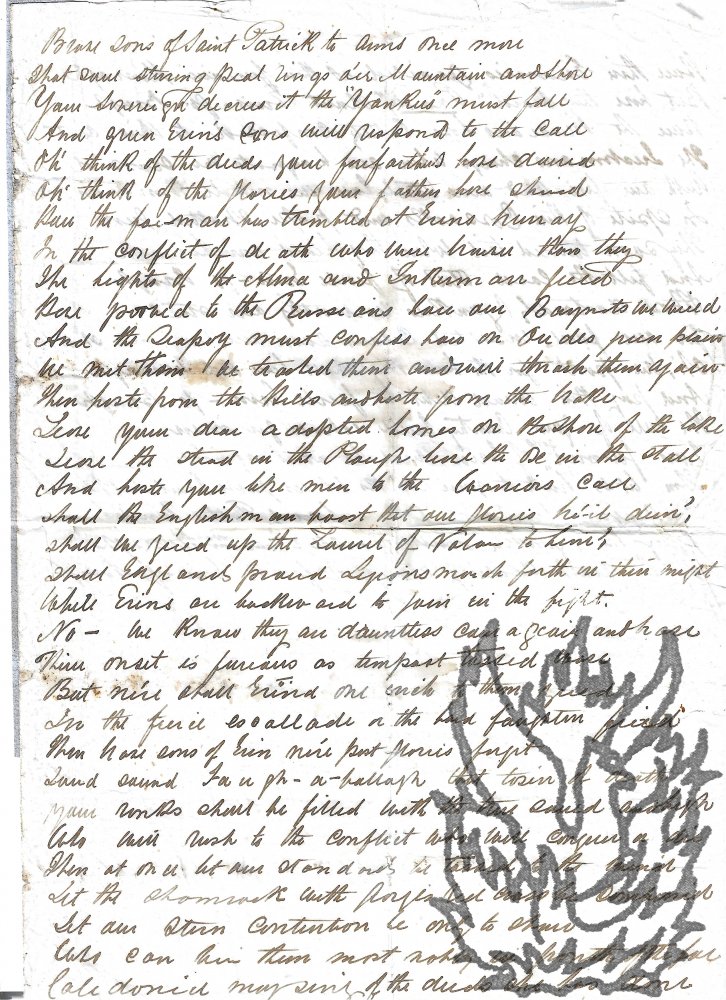 Brave sons of Saint Patrick to arms once more
That same stirring peal rings o'er Mountain and shore
Your Sovereign decrees it the "Yankees" must fall
And green Erin's sons will respond to the call
Oh' think of the deeds your forefathers have dared
Oh' think of the glories your fathers have shared
How the foe-man has trembled at Erins hurray
In the conflict of death who were braver than they
The hights of the Alma and Inkerman field
Have proved to the Russians how our Bayonets we wield
And the Seapoy must confess how on Oudes green plain
We met them we them and will thrash them again
Then haste from the Hills and haste from the brake
Leave your dear adopted homes on the shore of the lake
Leave the stead in the Plough leave the ox in the stall
And haste you like men to the Warriors call
Shall the Englishman boast that our glories he'll dim',
Shall we yield up the Laurel of Valour to him',
Shall Englands proud Legions march forth in their might
While Erins are backward to join in the fight.
No - we know they are dauntless and
Their onset is furious as tempest wave
But ne'er shall Erin one inch to them yield
In the fierce escallade or the hard foughten field
Then brave sons of Erin ne'er past glories forget
Sound sound Faugh-a-ballagh that tosin of death
Your ranks shall be filled with the
Who will rush to the conflict who will conquer or die
Then at once let our standards be to the wind
Let the Shamrock with
Let our stern contention be only to
Who can most the foe
Caledonia may sing of the deeds she has done